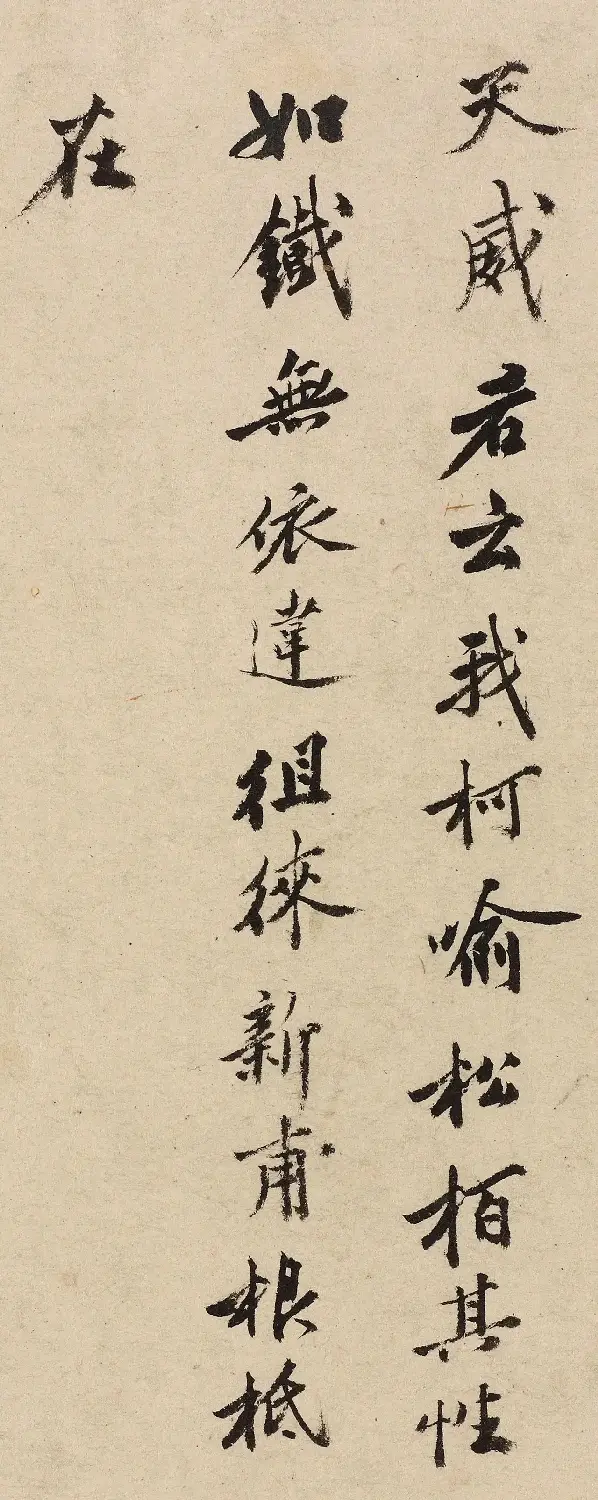 天威君云我柯喻松栢其性
如鐵無依違徂徠新甫根柢
在